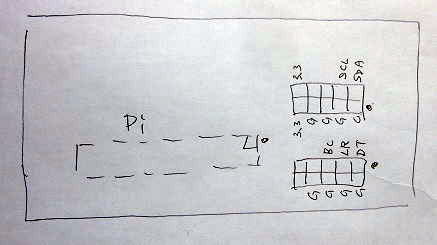 3.3 SCL SDA
Pi
3.3 G G G G
BC LR DT
G G G G